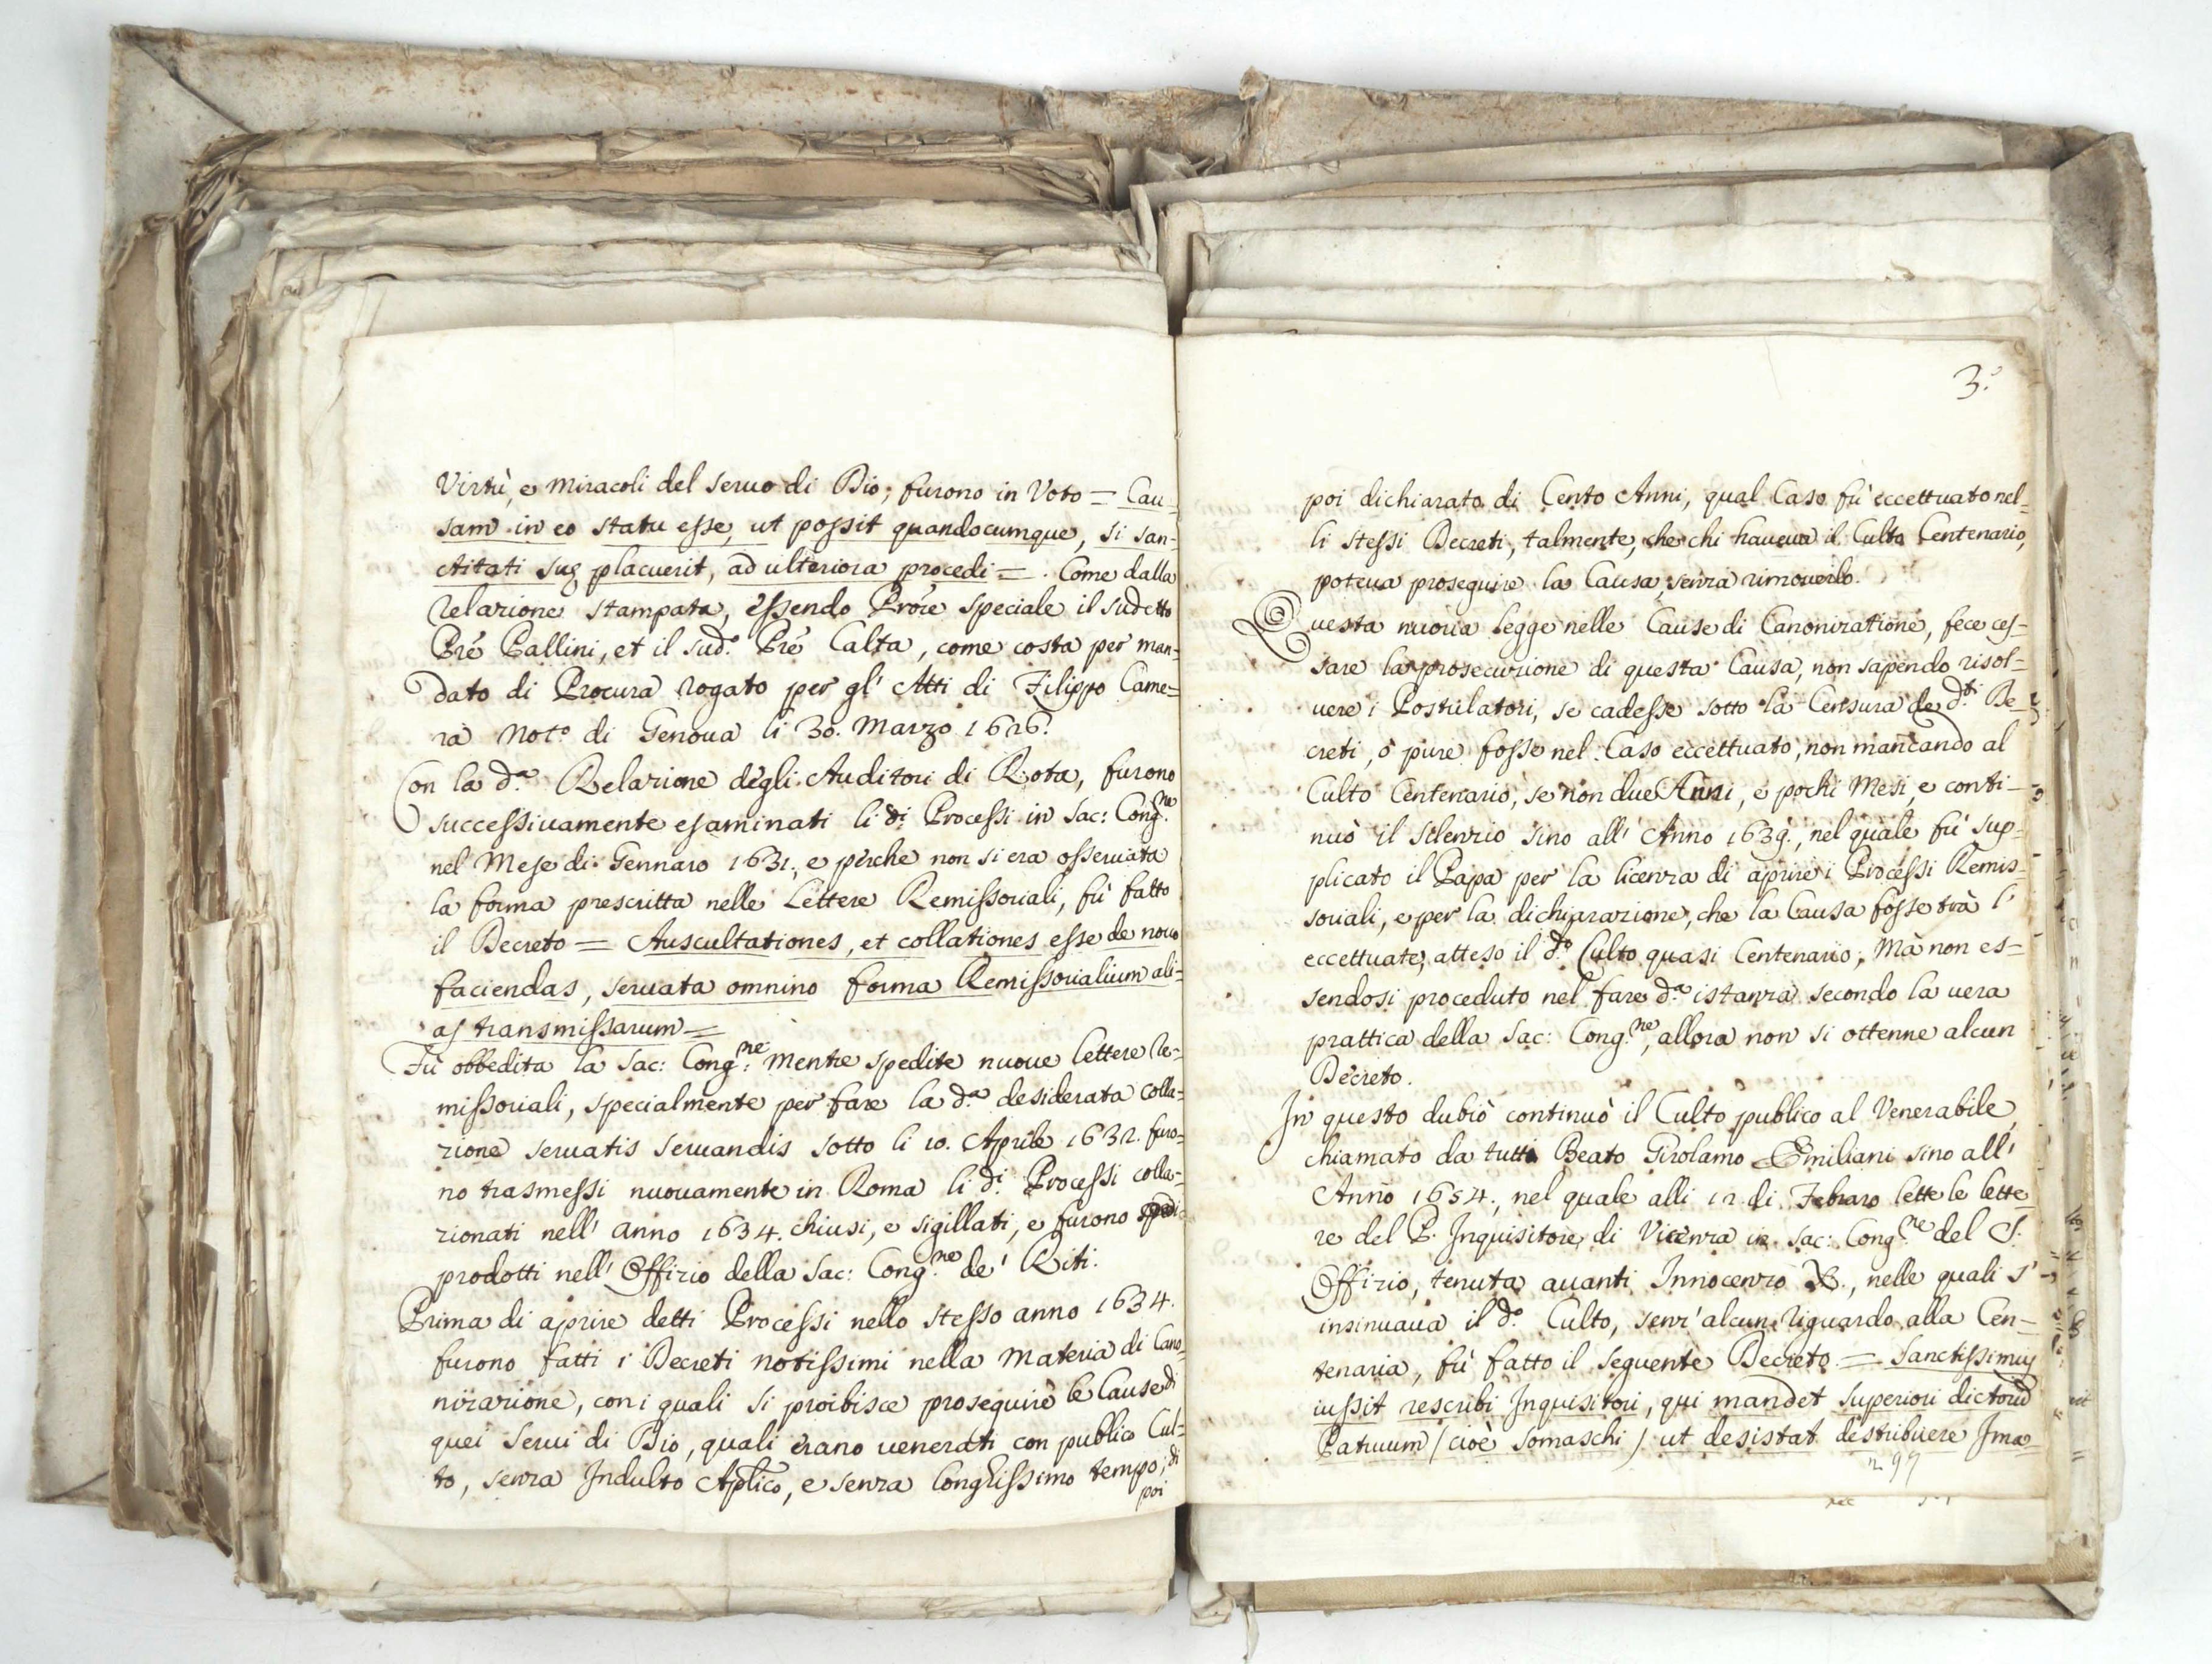 Virtù, e miracoli del seruo di Dio; furono in Voto = Cau-
sam in eo statu esse, ut possit quandocumque, si san-
ctitati suę placuerit, ad ulteriora procedi =. Come dalla
relazione stampata, essendo Prore speciale il sudetto
Pré Pallini, et il sud.º Pré Calta, come costa per man-
dato di Procura rogato per gl' Atti di Filippo Came-
ra Not.º di Genoua li 30. Marzo 1626.
Con la d.ª Relazione degli Auditori di Rota, furono
successiuamente esaminati li d.i Processi in Sac: Cong.ne
nel Mese di Gennaro 1631., e perche non si era osseruata
la forma prescritta nelle Lettere Remissoriali, fù fatto
il Decreto = Auscultationes, et collationes esse de nouo
faciendas, seruata omnino forma Remissorialium ali-
as transmissarum =
Fù obbedita la Sac: Cong.ne mentre spedite nuoue lettere Re-
missoriali, specialmente per fare la d.ª desiderata colla-
zione seruatis seruandis sotto li 10. Aprile 1632. furo-
no trasmessi nuouamente in Roma li d.i Processi colla-
zionati nell' anno 1634. chiusi, e sigillati, e furono
prodotti nell' Offizio della Sac: Cong.ne de' Riti.
Prima di aprire detti Processi nello stesso anno 1634.
furono fatti i Decreti notissimi nella Materia di Cano-
nizazione, con i quali si proibisce proseguire le Cause di
quei Serui di Dio, quali erano uenerati con publico Cul-
to, senza Indulto Aplico, e senza longhissimo tempo; di
poi
3.º
poi dichiarato di Cento Anni, qual Caso fù eccettuato nel-
li stessi Decreti, talmente, che chi haueua il Culto Centenario,
poteua proseguire la Causa, senza rimouerlo.
Questa nuoua legge nelle Cause di Canonizatione, fece ces-
sare la prosecuzione di questa Causa, non sapendo risol-
uere i Postulatori, se cadesse sotto la Censura de d.ti De-
creti, ò pure fosse nel Caso eccettuato, non mancando al
Culto Centenario, se non due Anni, e pochi Mesi, e conti-
nuò il silenzio sino all' Anno 1639., nel quale fù sup-
plicato il Papa per la licenza di aprire i Processi Remis-
soriali, e per la dichiarazione, che la Causa fosse trà l'
eccettuate, atteso il d.º Culto quasi Centenario, Mà non es-
sendosi proceduto nel fare d.ª istanza secondo la uera
prattica della Sac: Cong.ne, allora non si ottenne alcun
Decreto.
In questo dubiò continuò il Culto publico al Venerabile,
chiamato da tutti Beato Girolamo Emiliani sino all'
Anno 1654., nel quale alli 12. di Febraro lette le lette
re del P. Inquisitore di Vicenza in Sac: Cong.ne del S.
Offizio, tenuta auanti Innocenzo X., nelle quali s'
insinuaua il d.º Culto, senz' alcun riguardo alla Cen-
tenaria, fù fatto il seguente Decreto = Sanctissimus
iussit rescribi Inquisitori, qui mandet Superiori dictorũ
Patruum (cioè Somaschi) ut desistat destribuere Ima-
n. 97